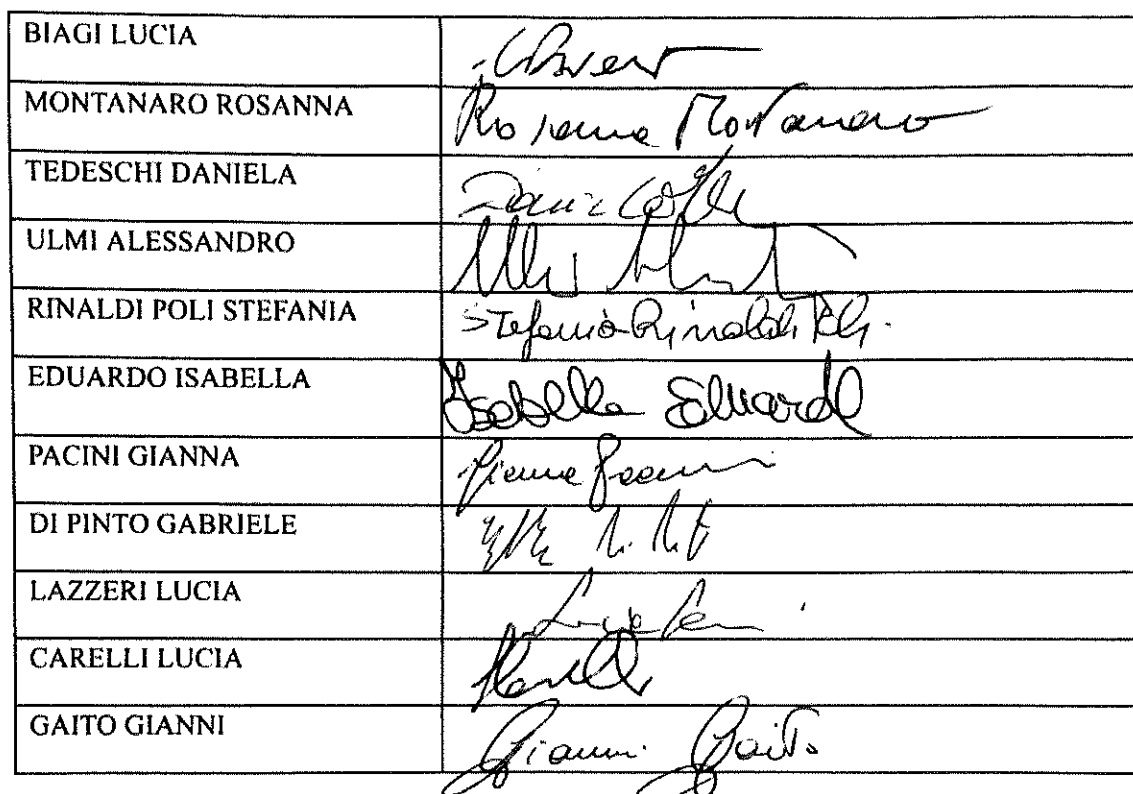 BIAGI LUCIA
MONTANARO ROSANNA Rosanna Montanaro
TEDESCHI DANIELA
ULMI ALESSANDRO
RINALDI POLI STEFANIA Stefania Rinaldi Poli
EDUARDO ISABELLA Isabella Eduardo
PACINI GIANNA Gianna Pacini
DI PINTO GABRIELE
LAZZERI LUCIA
CARELLI LUCIA
GAITO GIANNI Gianni Gaito